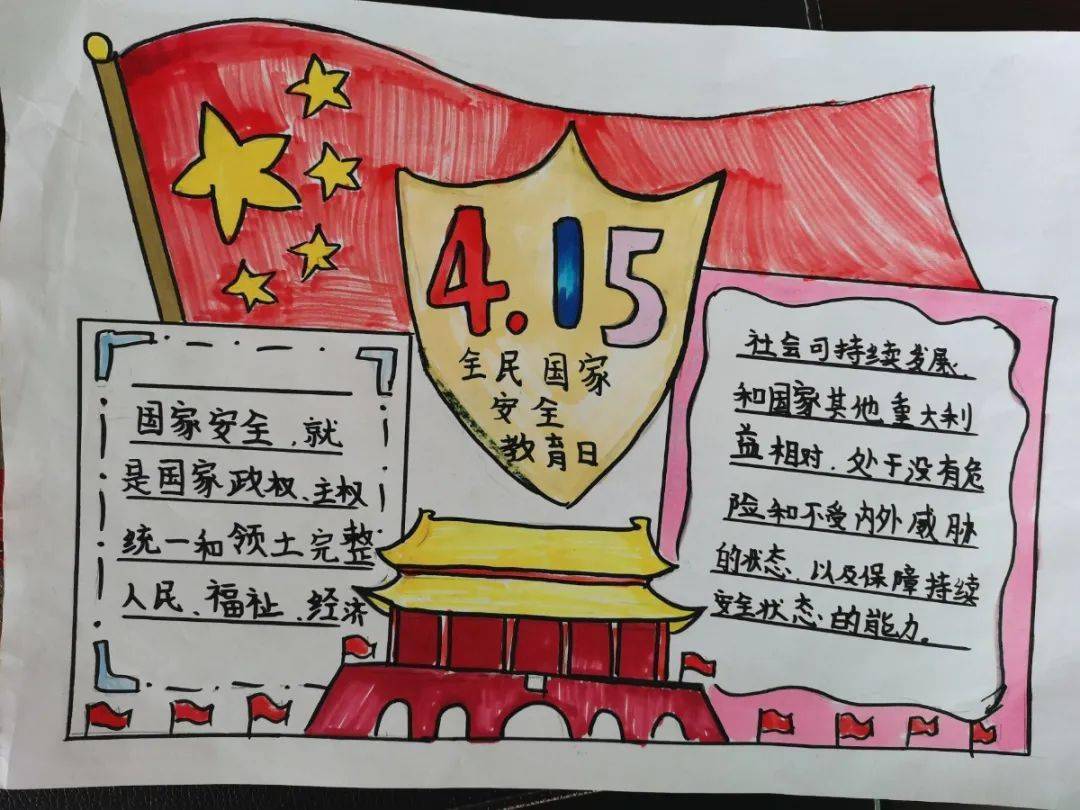 4.15
全民国家
安全
教育日
国家安全、就
是国家政权、主权
统一和领土完整
人民、福祉、经济
社会可持续发展、
和国家其他重大利
益相对、处于没有危
险和不受内外威胁
的状态、以及保障持续
安全状态的能力。